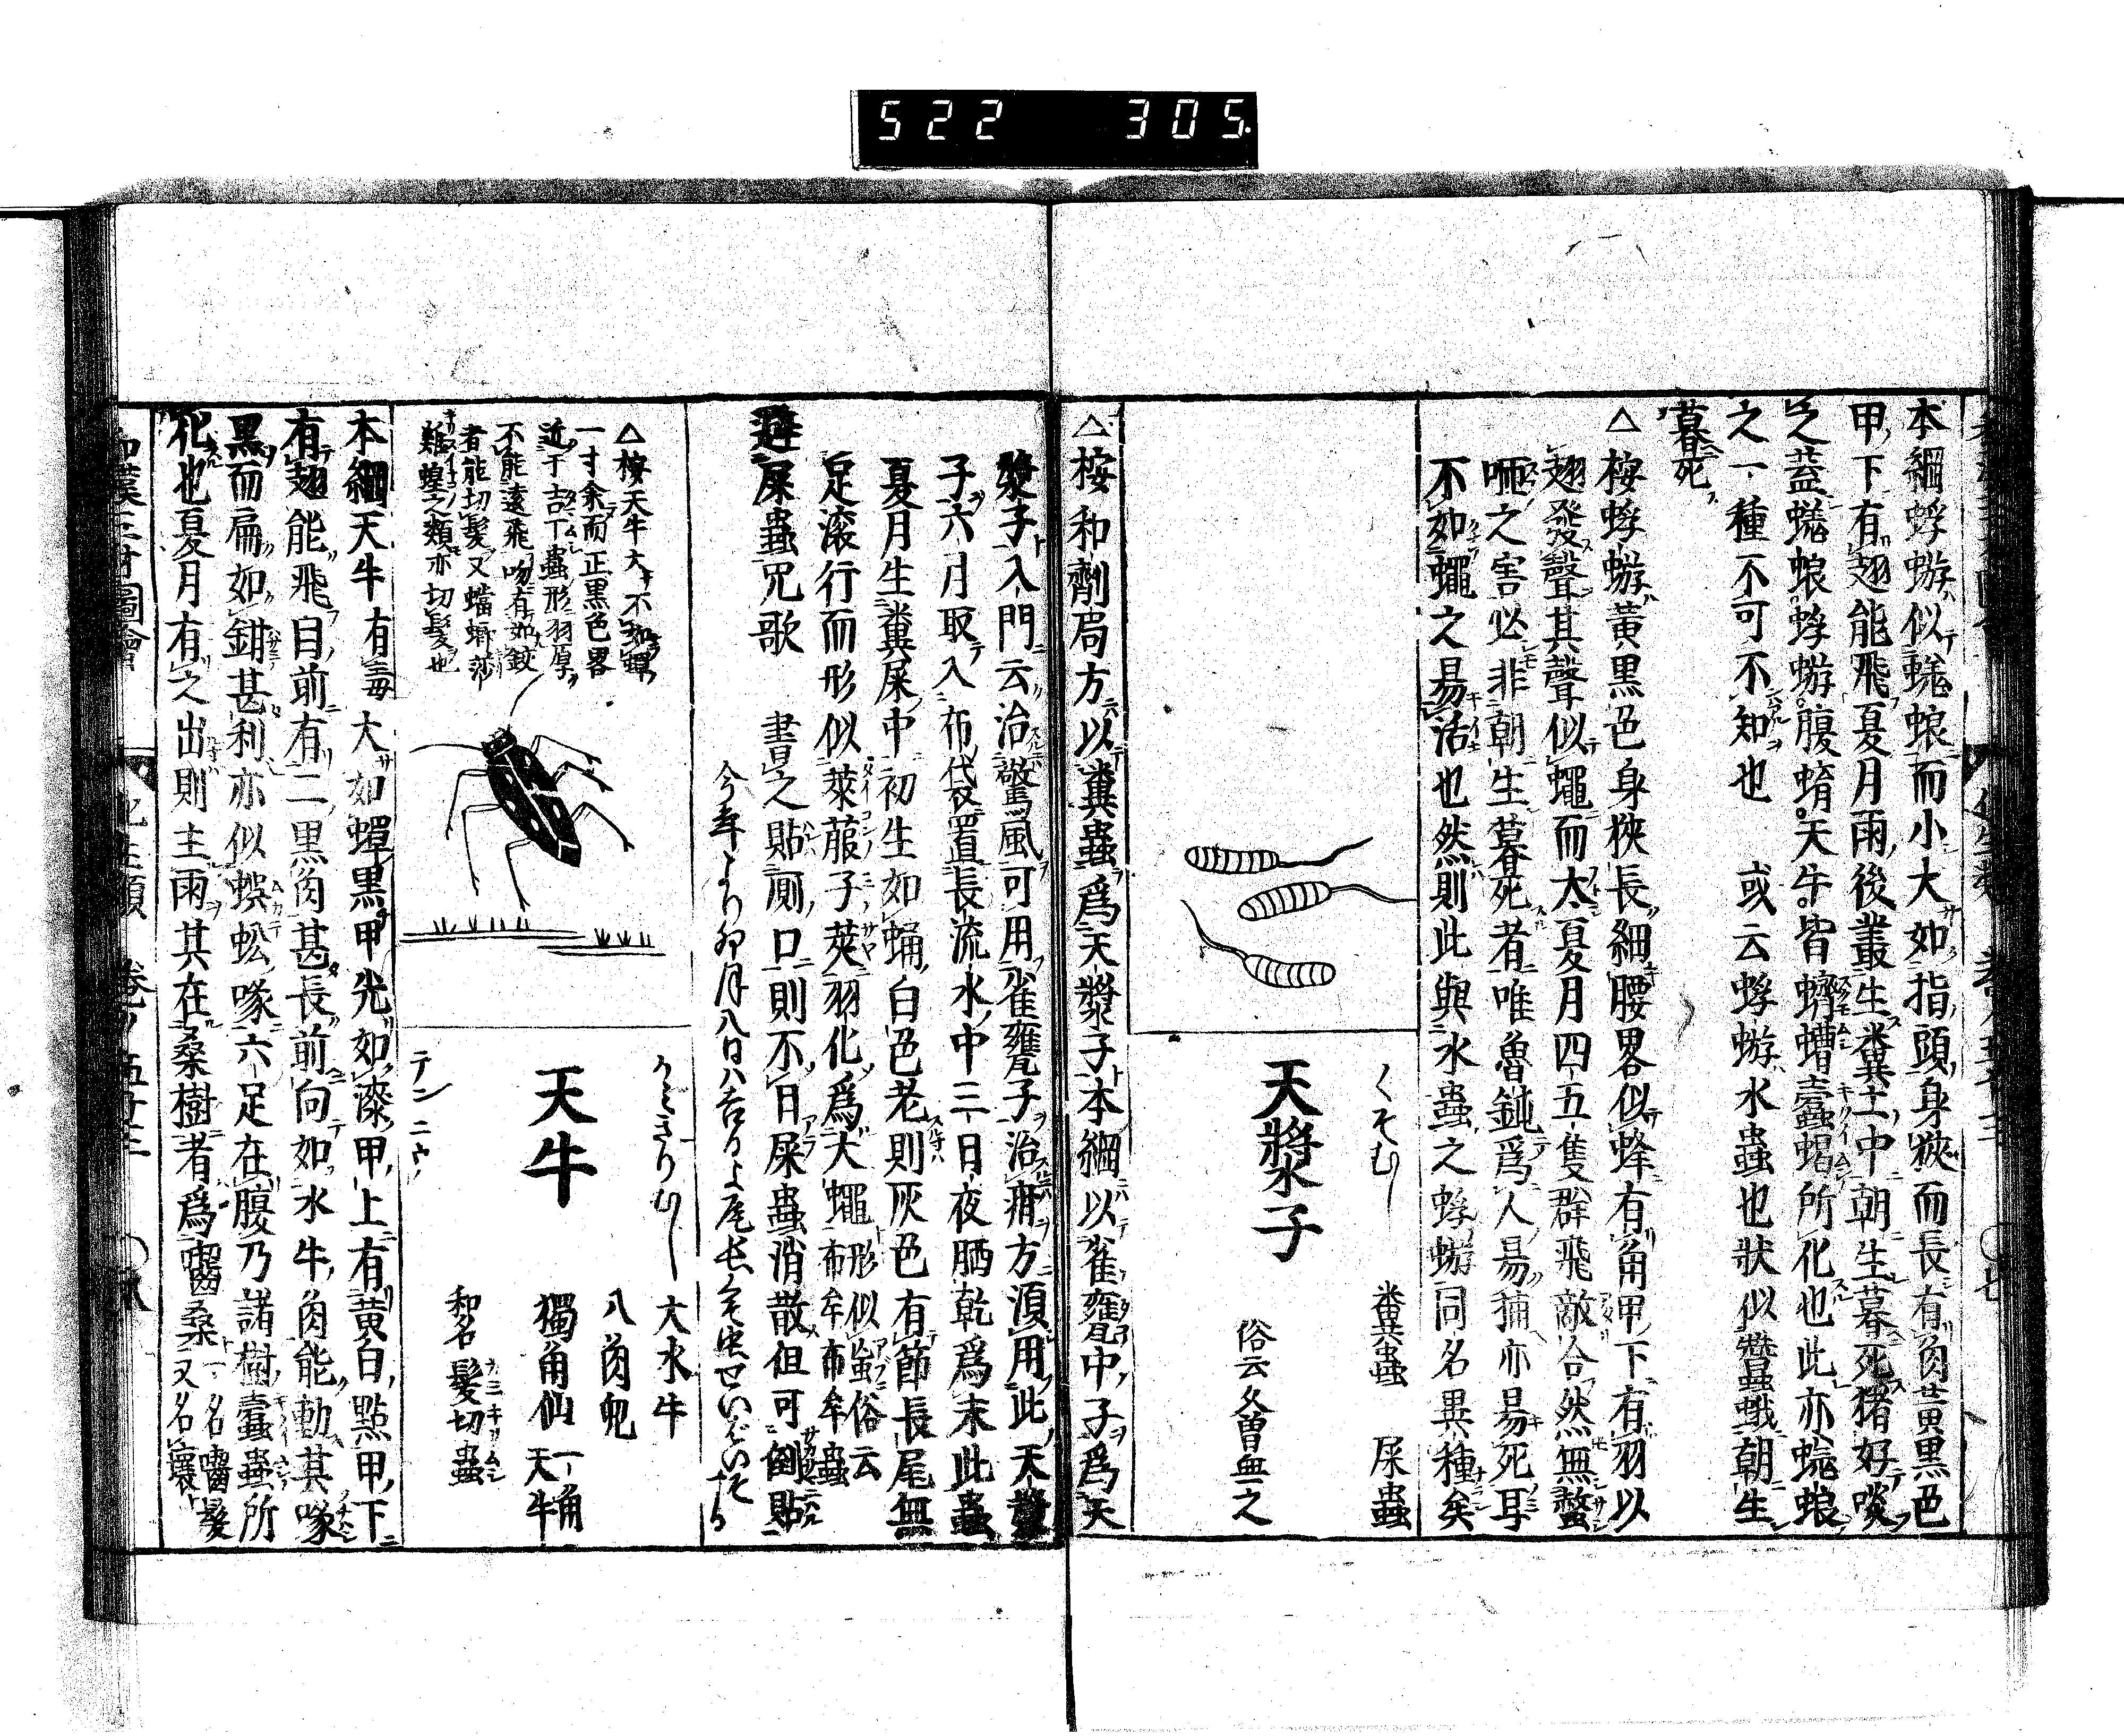 522 305.
本綱蜉蝣似蜣蜋而小大如指頭身狹而長有角黃黒色
甲下有翅能飛夏月雨後叢生糞土中朝生暮死猪好啖
之蓋蜣蜋蜉蝣腹蜟天牛皆蠐螬蠹蝎所化也此亦蜣蜋
之一種不可不知也 或云蜉蝣水蟲也狀似蠶蛾朝生
暮死
△桉蜉蝣黃黒色身狹長細腰畧似蜂有角甲下有羽以
翅發聲其聲似蠅而太夏月四五隻群飛敵合然無螫
咂之害必非朝生暮死者唯魯鈍爲人易捕亦易死耳
不如蠅之易活也然則此與水蟲之蜉蝣同名異種矣
くそむし
天漿子
糞蟲 屎蟲
俗云久曽無之
△桉和劑局方以糞蟲爲天漿子本綱以雀甕中子爲天
漿子入門云治驚風可用雀甕子治疳方湏用此天漿
子六月取入布袋置長流水中三日夜晒乾爲末此蟲
夏月生糞屎中初生如蛹白色老則灰色有節長尾無
足滚行而形似萊菔子莢羽化爲大蠅形似䖟俗云
布牟布牟蟲
避屎蟲咒歌 書之貼厠口則不日屎蟲消散但可倒貼
今年より卯月八日ハ吉日よ尾長くそ虫せいばいそする
かミきりむし
天牛
テン ニウ
大水牛
八角兒
獨角仙
一角天牛
和名髮切蟲
△桉天牛大不如蟬
一寸余而正黒色畧
近于吉丁蟲形羽厚
不能遠飛吻有如鉸
者能切髮又蟷螂莎
雞蝗之類亦切髮也
本綱天牛有毒大如蟬黒甲光如漆甲上有黃白㸃甲下
有翅能飛目前有二黒角甚長前向如水牛角能動其喙
黒而扁如鉗甚利亦似蜈蚣喙六足在腹乃諸樹蠹蟲所
化也夏月有之出則主雨其在桑樹者爲囓桑一名囓髮
又名蠰
和漢三才圖會
化生類